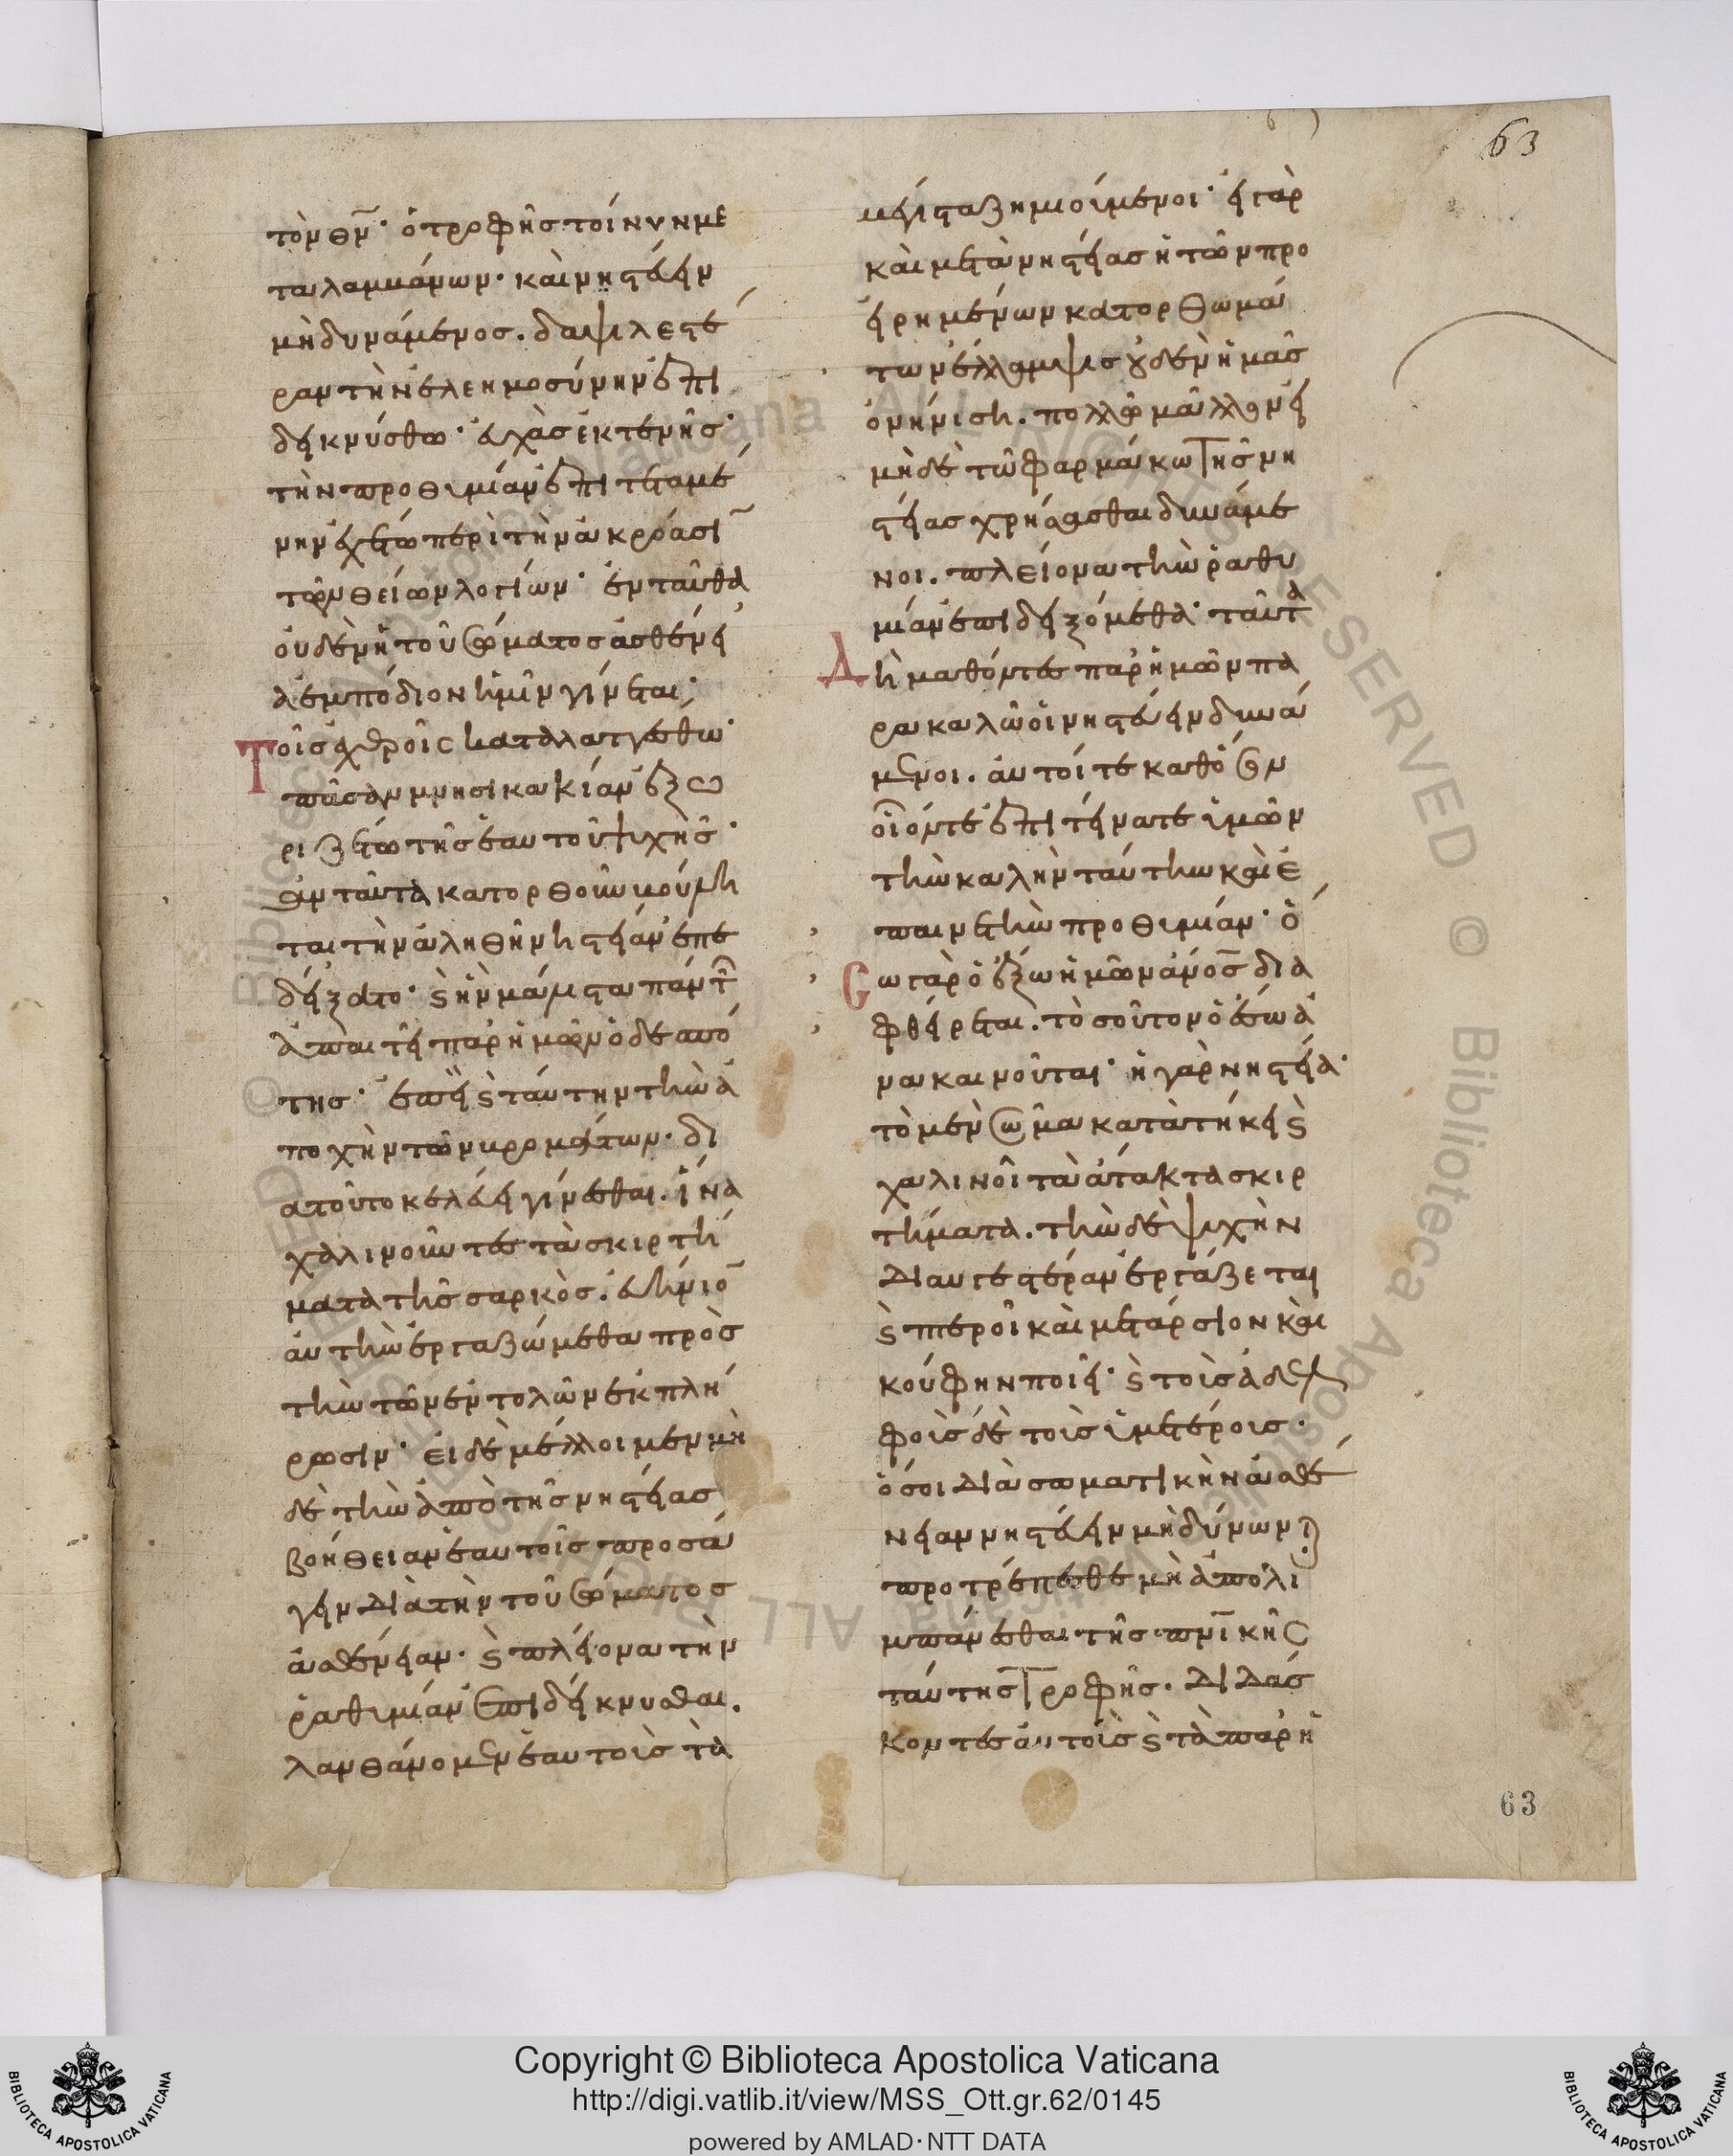 63
τὸν θν̄· ὁ τροφῆς τοίνυν με
ταλαμβάνων· καὶ νηστεύειν
μὴ δυνάμενος. δαψιλεστέ
ραν τὴν ἐλεημοσύνην ἐπι
δεικνύσθω· εὐχὰς ἐκτενῆς·
τὴν προθυμίαν ἐπιτεταμέ
νην ἐχέτω περὶ τὴν ἀκρόασῑ
τῶν θείων λογίων· ἐνταῦθα
οὐδὲν ἡ τοῦ σώματος ἀσθένει
α ἐμπόδιον ἡμῖν γίνεται·
Τοῖς ἐχθροῖς καταλαττέσθω·
πᾶσαν μνησικακίαν ἐξω
ριζέτω τῆς ἑαυτοῦ ψυχῆς·
ἂν ταῦτα κατορθοῦν βούλη
ται τὴν ἀληθῆ νηστείαν ἐπε
δείξατο· καὶ ἣν μάλιστα πάντ
ἀπαιτεῖ παρ' ἡμῶν ὁ δεσπό
της· ἐπεὶ καὶ ταύτην τὴν ἀ
ποχὴν τῶν βρωμάτων· δι
ὰ τοῦτο κελεύει γίνεσθαι. ἵνα
χαλινοῦντες τὰ σκιρτή
ματα τῆς σαρκὸς. εὐήνιον
αὐτὴν ἐργαζώμεθα πρὸς
τὴν τῶν ἐντολῶν ἐκπλή
ρωσιν· εἰ δὲ μέλλοιμεν μη
δὲ τὴν ἀπὸ τῆς νηστείας
βοήθειαν ἑαυτοῖς προσά
γειν διὰ τὴν τοῦ σώματος
ἀσθένειαν· καὶ πλείονα τὴν
ῥαθυμίαν ἐπιδείκνυσθαι.
λανθάνομεν ἑαυτοὺς τὰ
μέγιστα ζημιούμενοι· εἰ γὰρ
καὶ μετὰ νηστείας ἡ τῶν προ
ειρημένων κατορθωμά
των ἔλλειψις οὐδὲν ἡμᾶς
ὀνήνιση. πολλῷ μᾶλλον εἰ
μηδὲ τῷ φαρμάκω τῆς νη
στείας χρήσασθαι δυνάμε
νοι. πλείονα τὴν ῥαθυ
μίαν ἐπιδειξόμεθα· ταῦτα
Δὴ μαθόντες παρ' ἡμῶν πα
ρακαλῶ οἱ νηστεύειν δυνά
μενοι. αὐτοί τε καθόσον
οἷόντε ἐπιτείνατε ὑμῶν
τὴν καλὴν ταύτην καὶ ἐ
παινετὴν προθυμίαν· ὅ
Σω γὰρ ὁ ἔξω ἡμῶν ἄνος δια
φθείρεται. τὸ σοῦτον ὁ ἔσω ἀ
νακαινοῦται· ἡ γὰρ νηστεία·
τὸ μὲν σῶμα κατὰτήκει καὶ
χαλινοῖ τὰ ἄτακτα σκιρ
τήματα. τὴν δὲ ψυχὴν
διαυγεστέραν ἐργάζεται
καὶ πτεροῖ καὶ μετάρσιον καὶ
κούφην ποιεῖ· καὶ τοὶς ἀδελ
φοὶς δὲ τοὶς ὑμετέροις·
ὅσοι διὰ σωματικὴν ἀσθέ
νειαν νηστεύειν μὴ δύνωνται
προτρέπεσθε μὴ ἀπολι
μπάνεσθαι τῆς πν̄ικῆς
ταύτης τροφῆς. διδάσ
κοντες αὐτοὶς καὶ τὰ παρ' ἡ
63
Copyright © Biblioteca Apostolica Vaticana
http://digi.vatlib.it/view/MSS_Ott.gr.62/0145
powered by AMLAD·NTT DATA
BIBLIOTECA APOSTOLICA VATICANA
BIBLIOTECA APOSTOLICA VATICANA